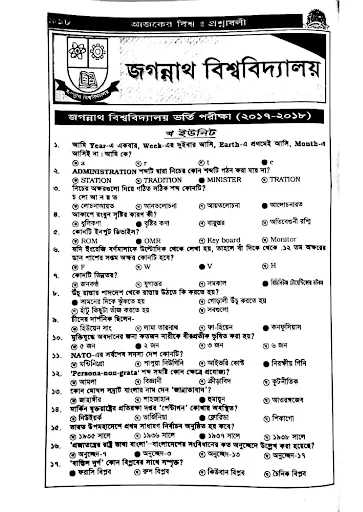 আজকের বিশ্ব ঃ প্রশ্নাবলী
জগন্নাথ বিশ্ববিদ্যালয়
জগন্নাথ বিশ্ববিদ্যালয় ভর্তি পরীক্ষা (২০১৭-২০১৮)
খ ইউনিট
১. আমি Year-এ একবার, Week-এর দুইবার আসি, Earth-এ প্রথমেই আসি, Month-এ
আসিই না। আমি কে?
a r t e
২. ADMINISTRATION শব্দটি দ্বারা নিচের কোন শব্দটি গঠন করা যায় না?
STATION TRADITION MINISTER TRATION
৩. নিচের অক্ষরগুলো নিয়ে গঠিত সঠিক শব্দ কোনটি?
আলোচনারত
৪. আকাশে রংধনু সৃষ্টির কারণ কী?
ধূলিকণা বৃষ্টির কণা বায়ুস্তর অতিবেগুনী রশ্মি
৫. কোনটি ইনপুট ডিভাইস?
ROM OMR Key board Monitor
৬. যদি ইংরেজি বর্ণমালাকে উল্টোদিক থেকে লেখা হয়, তাহলে বাঁ দিক থেকে ১২ তম অক্ষরের
ডান পাশের সপ্তম অক্ষর কোনটি হবে?
F W V H
৭. কোনটি ভিন্নতর?
জনকণ্ঠ যুগান্তর সমকাল
৮. উঁচু রাস্তার পাদদেশ থেকে রাস্তায় উঠতে কি করতে হয়?
সামনের দিকে ঝুঁকতে হয় গোড়ালী উঁচু করতে হয়
হাঁটু কিছুটা ভাঁজ করতে হয় সবগুলো
৯. চীনের দার্শনিক ছিলেন-
হিউয়েন সাং লামা তারনাথ ফা-হিয়েন কনফুসিয়াস
১০. মুক্তিযুদ্ধে অবদানের জন্য কতজন নারীকে বীরপ্রতীক ভূষিত করা হয়?
৫ জন ২ জন ৩ জন ৬ জন
১১. NATO-এর সর্বশেষ সদস্য দেশ কোনটি?
মন্টিনিগ্রো পাপুয়া নিউগিনি আইভরি কোস্ট
১২. 'Persona-non-grata' শব্দ সমষ্টি কোন ক্ষেত্রে প্রযোজ্য?
আমলা বিজ্ঞানী ক্রীড়াবিদ কূটনীতিক
১৩. কোন মোঘল সম্রাট বাংলার নাম দেন 'জান্নাতাবাদ'?
জাহাঙ্গীর শাহজাহান হুমায়ুন আওরঙ্গজেব
১৪. মার্কিন যুক্তরাষ্ট্রের প্রতিরক্ষা দপ্তর 'পেন্টাগন' কোথায় অবস্থিত?
নিউইয়র্ক ভার্জিনিয়া ফ্লোরিডা শিকাগো
১৫. ভারত উপমহাদেশে প্রথম সাধারণ নির্বাচন অনুষ্ঠিত হয় কবে?
১৯৩৫ সালে ১৯৩৬ সালে ১৯৩৭ সালে ১৯৩৮ সালে
১৬. 'প্রজাতন্ত্রের রাষ্ট্র ভাষা বাংলা'-বাংলাদেশের সংবিধানের কত অনুচ্ছেদে উল্লেখ করা হয়েছে?
অনুচ্ছেদ-৭ অনুচ্ছেদ-৩ অনুচ্ছেদ-১৩ অনুচ্ছেদ-১৭
১৭. 'বাস্তিল দুর্গ' কোন বিপ্লবের সাথে সম্পৃক্ত?
ফরাসি বিপ্লব রুশ বিপ্লব কিউবান বিপ্লব চৈনিক বিপ্লব